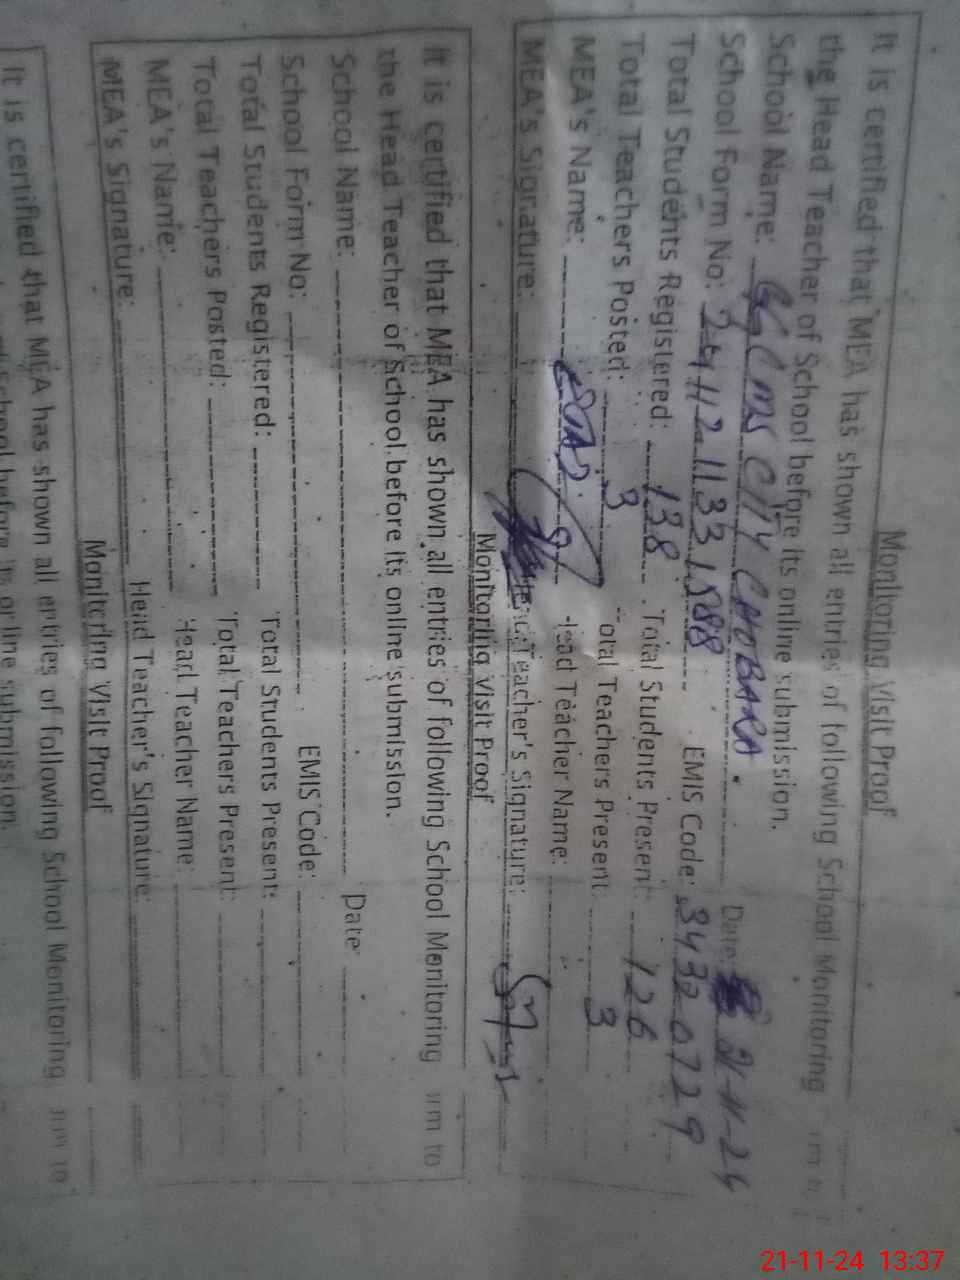 Monitoring Visit Proof
It is certified that MEA has shown all entries of following School Monitoring
the Head Teacher of School before its online submission.
School Name: GGCMS CITY CHOBARA Date: 21-11-24
School Form No: 24112-1133 1588 EMIS Code: 34320729
Total Students Registered: 138 Total Students Present: 126
Total Teachers Posted: 3 Total Teachers Present: 3
MEA's Name: Head Teacher Name:
MEA's Signature: Head Teacher's Signature:
Monitoring Visit Proof
It is certified that MEA has shown all entries of following School Monitoring rm to
the Head Teacher of School before its online submission.
School Name: Date:
School Form No: EMIS Code:
Total Students Registered: Total Students Present:
Total Teachers Posted: Total Teachers Present:
MEA's Name: Head Teacher Name:
MEA's Signature: Head Teacher's Signature:
Monitoring Visit Proof
It is certified that MEA has shown all entries of following School Monitoring rm to
School before its online submission.
21-11-24 13:37